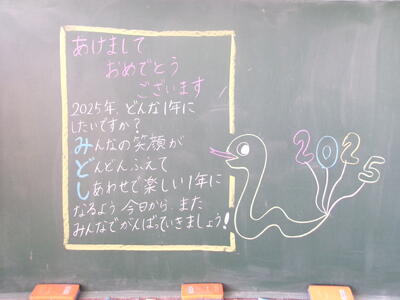 あけまして
おめでとう
ございます
2025年、どんな1年に
したいですか?
みんなの笑顔が
どんどんふえて
しあわせで楽しい1年に
なるよう 今日から、また
みんなでがんばっていきましょう!
2025